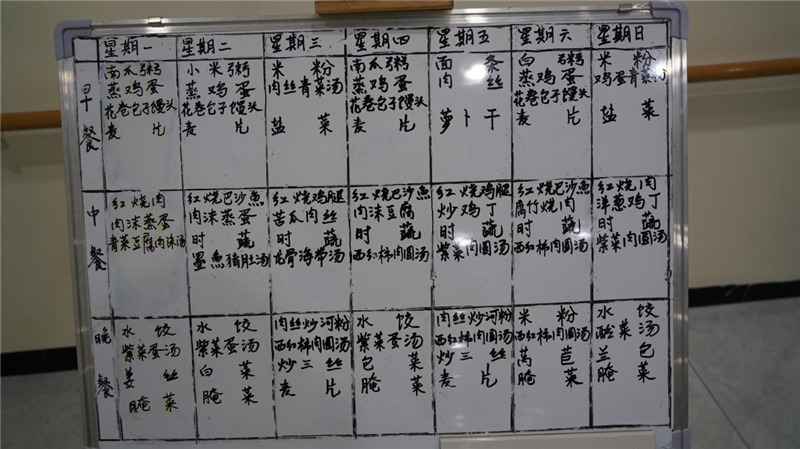 星期一 星期二 星期三 星期四 星期五 星期六 星期日
早餐
南瓜粥 小米粥 米粉 南瓜粥 面条 白粥 米粉
蒸鸡蛋 蒸鸡蛋 肉丝青菜汤 蒸鸡蛋 肉丝 蒸鸡蛋 鸡蛋青菜汤
花卷包子馒头 花卷包子馒头 花卷包子馒头 花卷包子馒头
麦片 麦片 盐菜 麦片 萝卜干 麦片 盐菜
中餐
红烧肉 红烧巴沙魚 红烧鸡腿 红烧巴沙魚 红烧鸡腿 红烧巴沙魚 红烧肉
肉沫蒸蛋 肉沫蒸蛋 苦瓜肉丝 肉沫豆腐 炒鸡丁 腐竹烧肉 洋葱鸡丁
青菜豆腐肉沫汤 时蔬 时蔬 时蔬 时蔬 时蔬 时蔬
墨魚猪肚汤 龙骨海带汤 西红柿肉圆汤 紫菜肉圆汤 西红柿肉圆汤 紫菜肉圆汤
晚餐
水饺 水饺 肉丝炒河粉 水饺 肉丝炒河粉 米粉 水饺
紫菜蛋汤 紫菜蛋汤 西红柿肉圆汤 紫菜蛋汤 西红柿肉圆汤 西红柿肉圆汤 酸菜汤
姜丝 白菜 炒三丝 包菜 炒三丝 莴苣 兰包
腌菜 腌菜 麦片 腌菜 麦片 腌菜 腌菜